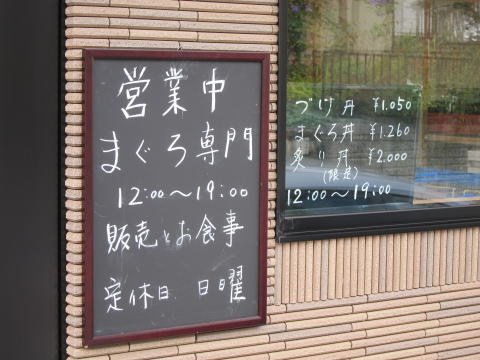 営業中
まぐろ専門
12:00〜19:00
販売とお食事
定休日 日曜
づけ丼 ¥1.050
まぐろ丼 ¥1.260
炙り丼 ¥2.000
(限定)
12:00〜19:00